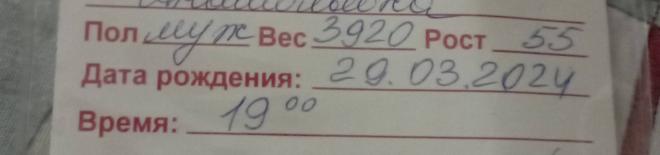 Пол муж Вес 3920 Рост 55
Дата рождения: 29.03.2024
Время: 19 00